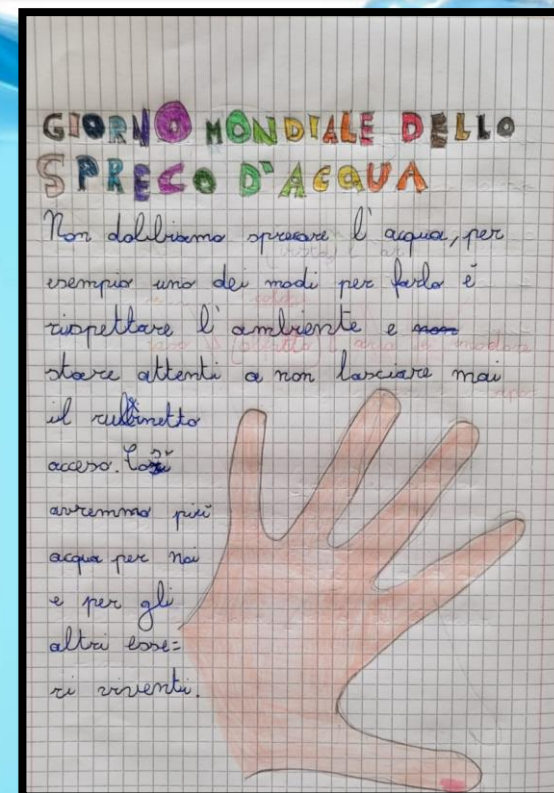 GIORNO MONDIALE DELLO
SPRECO D'ACQUA
Non dobbiamo sprecare l'acqua, per
esempio uno dei modi per farlo è
rispettare l'ambiente e non
stare attenti a non lasciare mai
il rubinetto
acceso. Così
avremmo più
acqua per noi
e per gli
altri esse=
ri viventi.